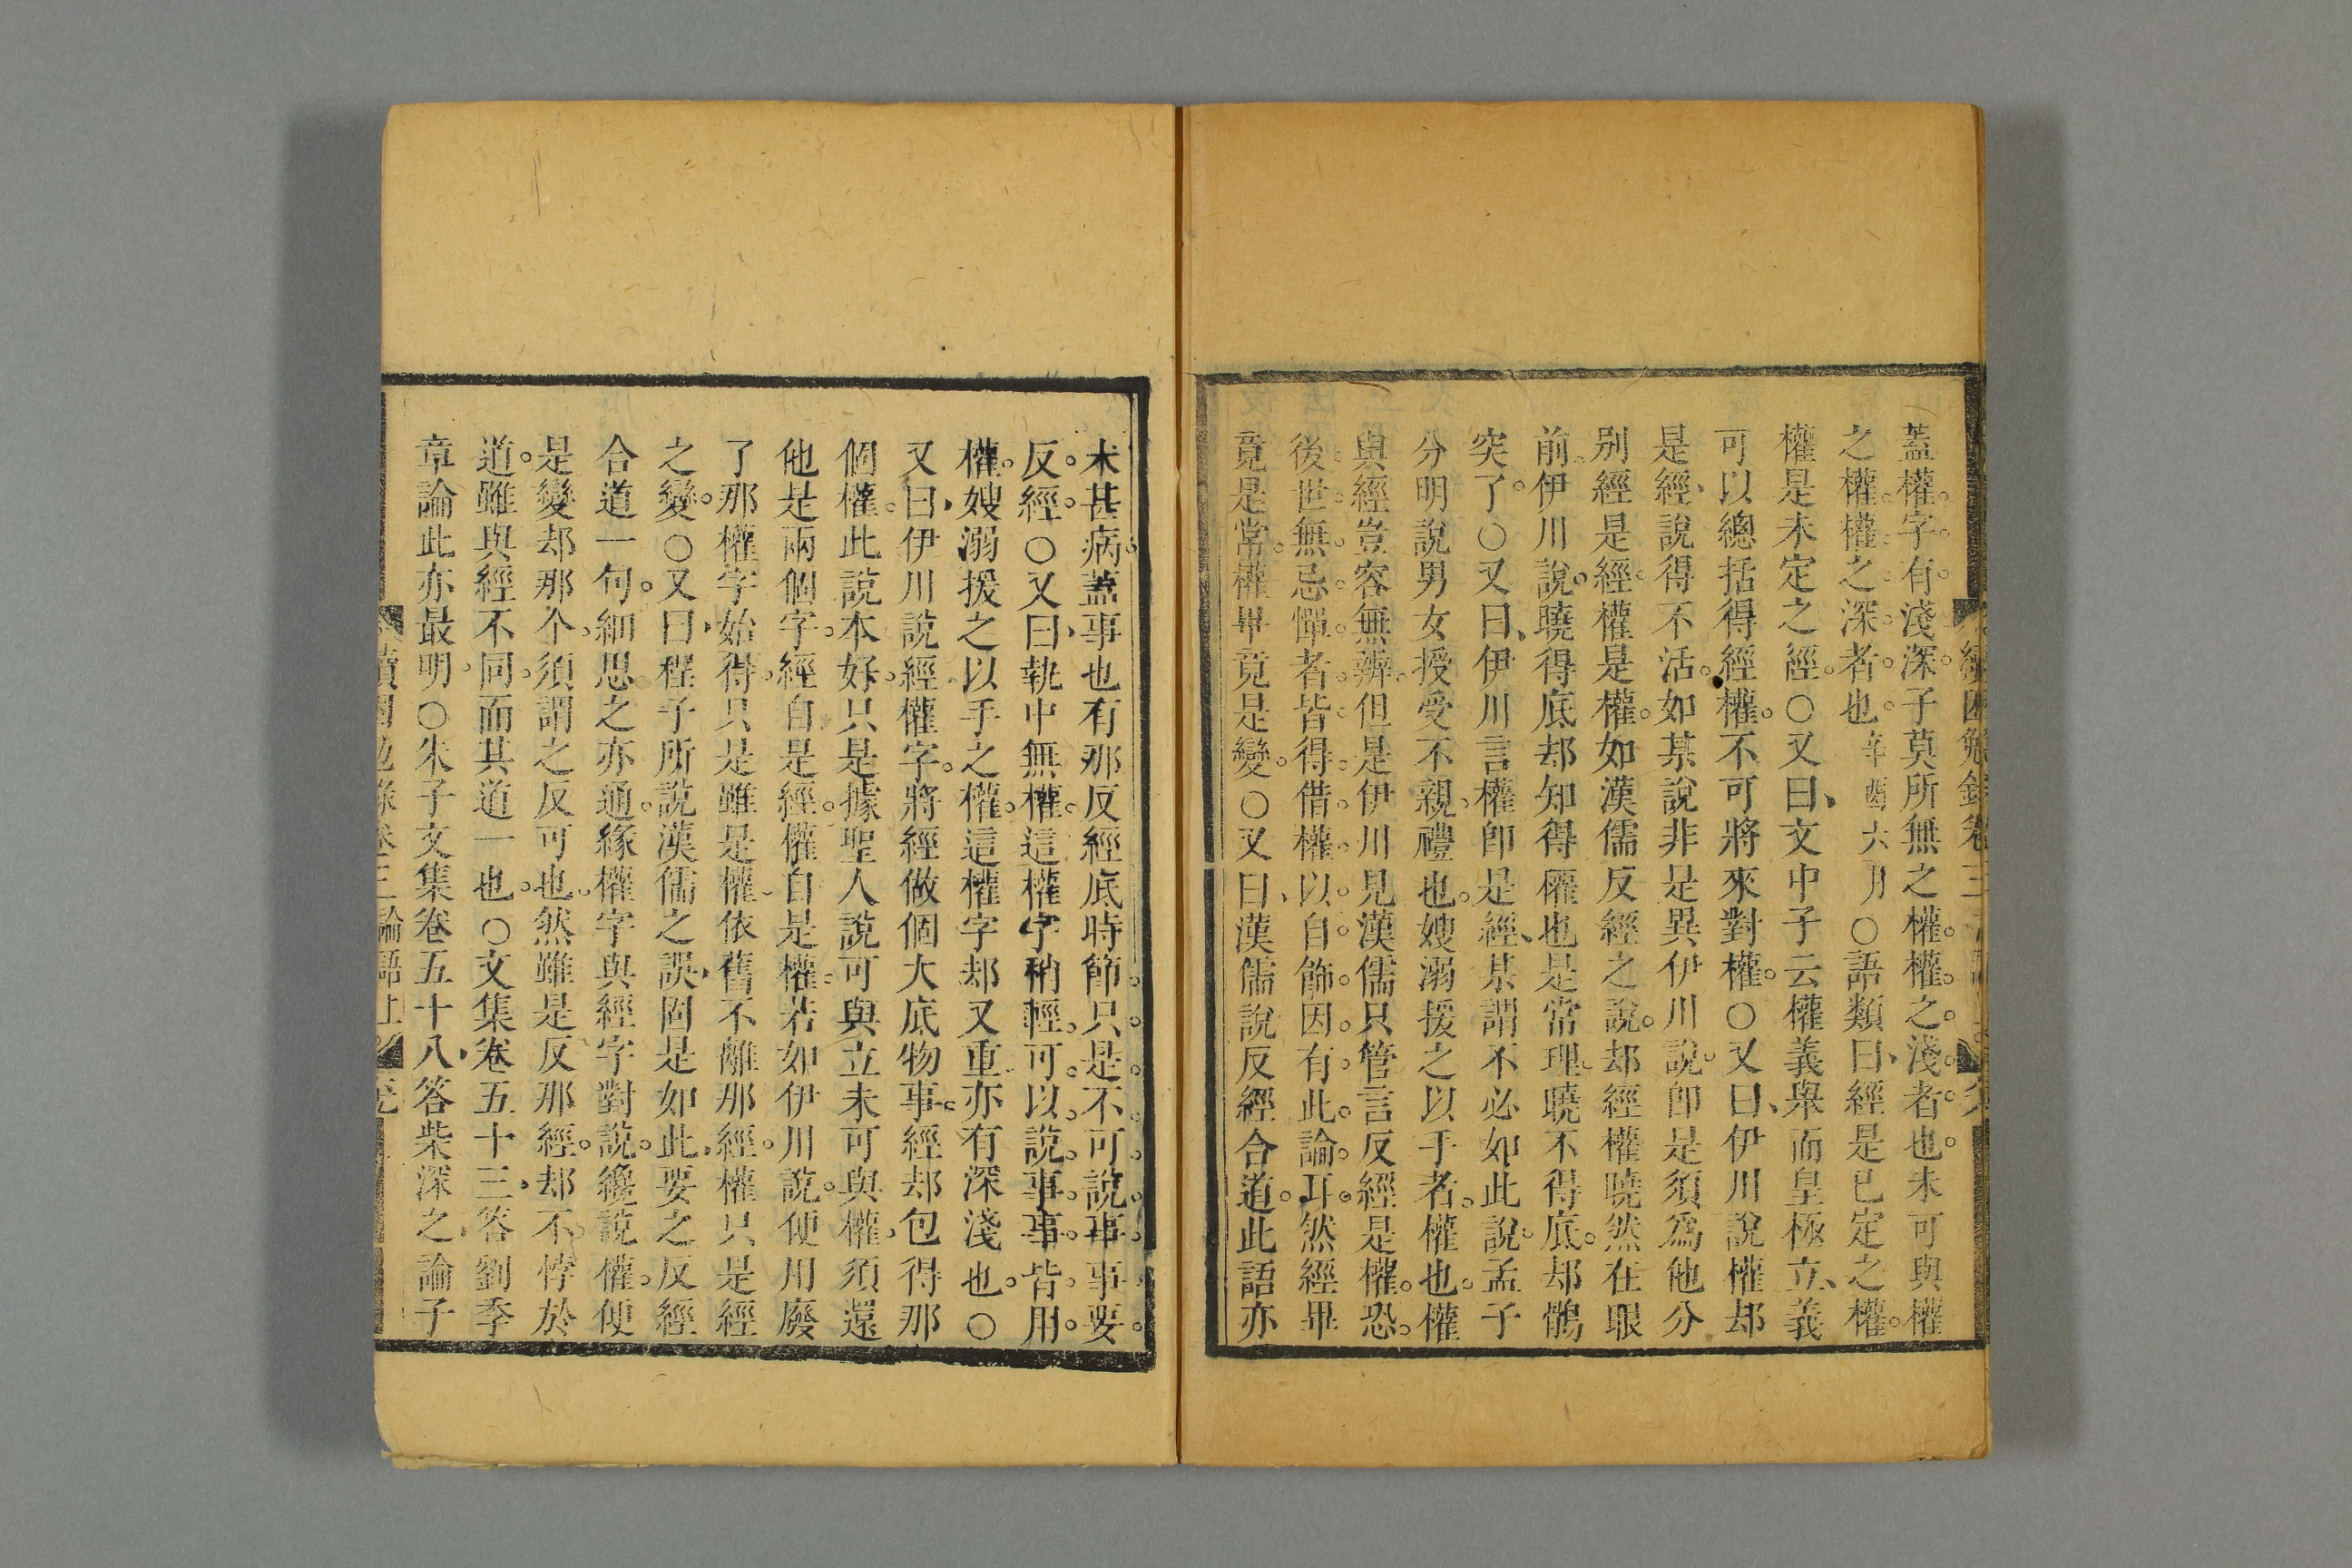 蓋權字有淺深子莫所無之權權之淺者也未可與權
之權權之深者也辛酉六月○語類曰經是已定之權
權是未定之經○又曰文中子云權義舉而皇極立義
可以總括得經權不可將來對權○又曰伊川說權却
是經說得不活如某說非是異伊川說卽是須爲他分
別經是經權是權如漢儒反經之說却經權曉然在眼
前伊川說曉得底却知得權也是常理曉不得底却鶻
突了○又曰伊川言權卽是經某謂不必如此說孟子
分明說男女授受不親禮也嫂溺援之以手者權也權
與經豈容無辨但是伊川見漢儒只管言反經是權恐
後世無忌憚者皆得借權以自飾因有此論耳然經畢
竟是常權畢竟是變○又曰漢儒說反經合道此語亦
未甚病蓋事也有那反經底時節只是不可說事事要
反經○又曰執中無權這權字稍輕可以說事事皆用
權嫂溺援之以手之權這權字却又重亦有深淺也○
又曰伊川說經權字將經做個大底物事經却包得那
個權此說本好只是據聖人說可與立未可與權須還
他是兩個字經自是經權自是權若如伊川說便用廢
了那權字始得只是雖是權依舊不離那經權只是經
之變○又曰程子所說漢儒之誤固是如此要之反經
合道一句細思之亦通緣權字與經字對說纔說權便
是變却那个須謂之反可也然雖是反那經却不悖於
道雖與經不同而其道一也○文集卷五十三答劉季
章論此亦最明○朱子文集卷五十八答柴深之論子
續困勉錄卷三論語上